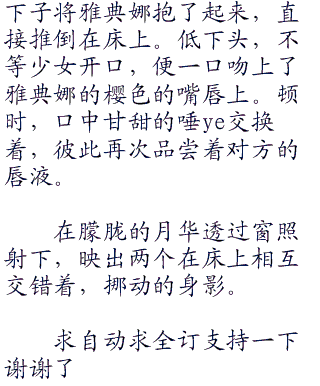 下子将雅典娜抱了起来，直
接推倒在床上。低下头，不
等少女开口，便一口吻上了
雅典娜的樱色的嘴唇上。顿
时，口中甘甜的唾ye交换
着，彼此再次品尝着对方的
唇液。
在朦胧的月华透过窗照
射下，映出两个在床上相互
交错着，挪动的身影。
求自动求全订支持一下
谢谢了